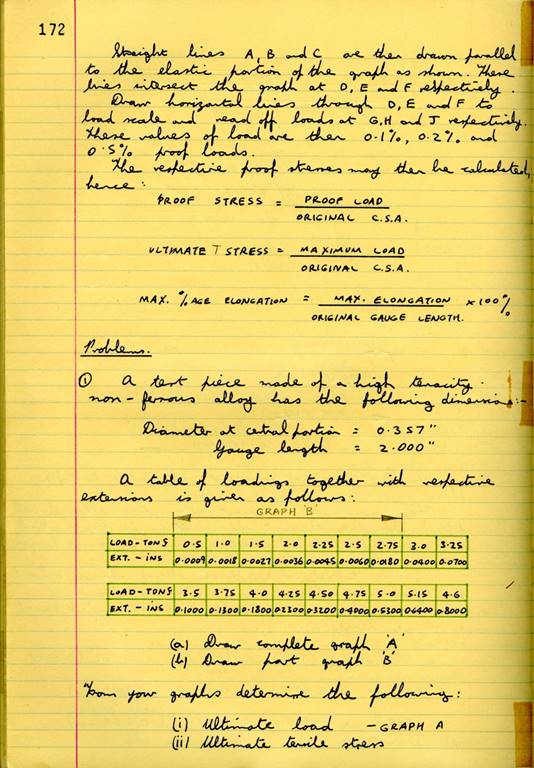 172
Straight lines A, B and C are then drawn parallel
to the elastic portion of the graph as shown. These
lines intersect the graph at D, E and F respectively.
Draw horizontal lines through D, E and F to
load scale and read off loads at G, H and J respectively.
These values of load are then 0.1%, 0.2% and
0.5% proof loads.
The respective proof stresses may then be calculated,
hence:
PROOF STRESS = PROOF LOAD
ORIGINAL C.S.A.
ULTIMATE T STRESS = MAXIMUM LOAD
ORIGINAL C.S.A.
MAX. %AGE ELONGATION = MAX. ELONGATION × 100%
ORIGINAL GAUGE LENGTH.
Problems.
① A test piece made of a high tenacity
non-ferrous alloy has the following dimensions:-
Diameter at central portion = 0.357"
Gauge length = 2.000"
A table of loadings together with respective
extensions is given as follows:
GRAPH 'B'
LOAD-TONS 0.5 1.0 1.5 2.0 2.25 2.5 2.75 3.0 3.25
EXT.-INS 0.0009 0.0018 0.0027 0.0036 0.0045 0.0060 0.0180 0.0400 0.0700
LOAD-TONS 3.5 3.75 4.0 4.25 4.50 4.75 5.0 5.15 4.6
EXT-INS 0.1000 0.1300 0.1800 0.2300 0.3200 0.4000 0.5300 0.6400 0.8000
(a) Draw complete graph 'A'
(b) Draw part graph 'B'
From your graphs determine the following:
(i) Ultimate load - GRAPH A
(ii) Ultimate tensile stress